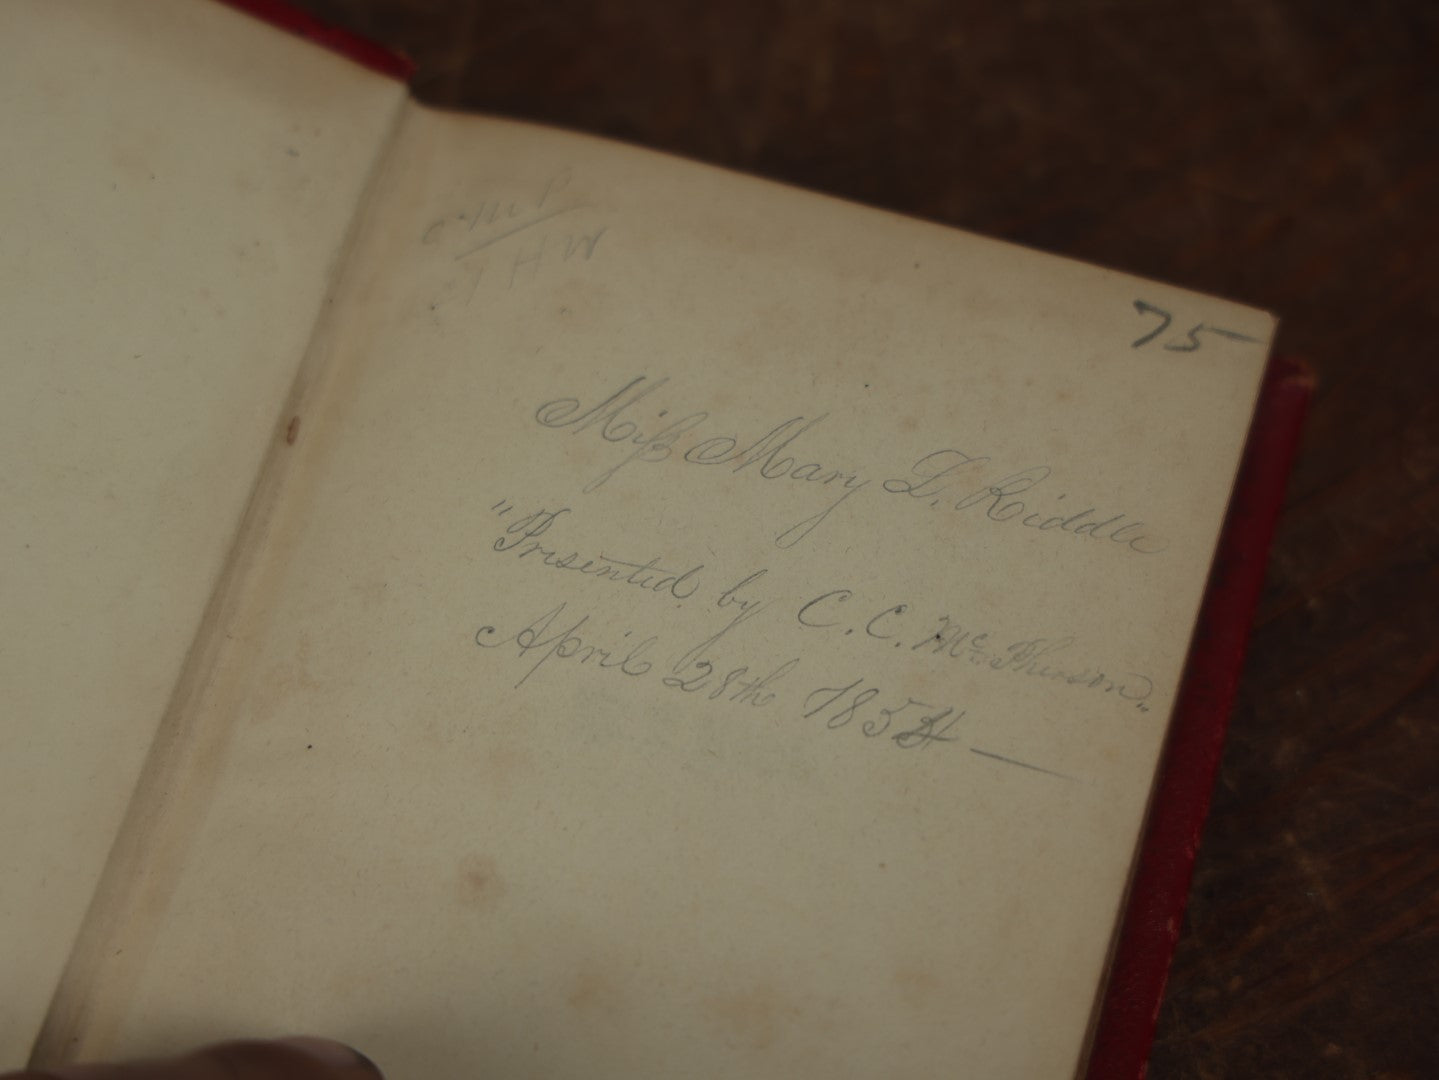 75
Miss Mary L. Riddle
"Presented by C. C. McPherson"
April 28th 1854 —